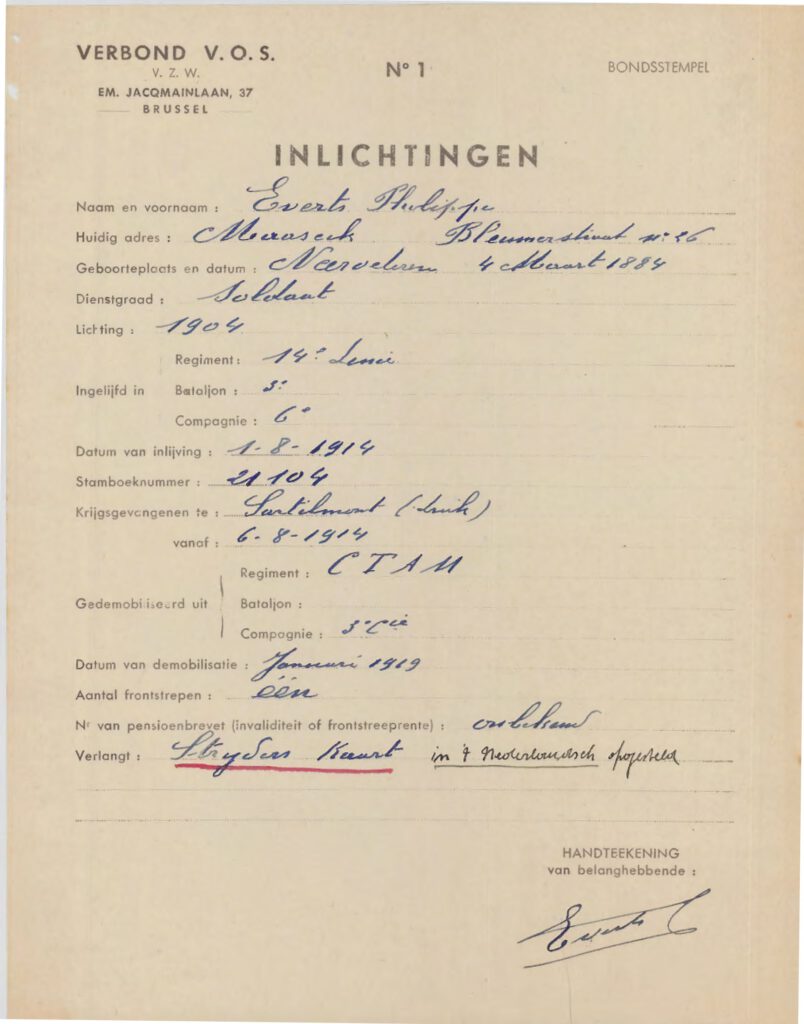 VERBOND V.O.S.
V. Z. W.
EM. JACQMAINLAAN, 37
BRUSSEL
N° 1
BONDSSTEMPEL
INLICHTINGEN
Naam en voornaam : Everts Philippe
Huidig adres : Maaseik Bleumerstraat n° 26
Geboorteplaats en datum : 4 Maart 1884
Dienstgraad : Soldaat
Lichting : 1904
Regiment : 14e Linie
Ingelijfd in Bataljon : 3e
Compagnie : 6e
Datum van inlijving : 1-8-1914
Stamboeknummer : 21104
Krijgsgevangenen te : Sartilmont (Luik)
vanaf : 6-8-1914
Regiment : C T A M
Gedemobiliseerd uit Bataljon :
Compagnie : 3e Cie
Datum van demobilisatie : Januari 1919
Aantal frontstrepen : één
Nr van pensioenbrevet (invaliditeit of frontstreeprente) : onbekend
Verlangt : Stryders Kaart in 't Nederlandsch opgesteld
HANDTEEKENING
van belanghebbende :
Everts